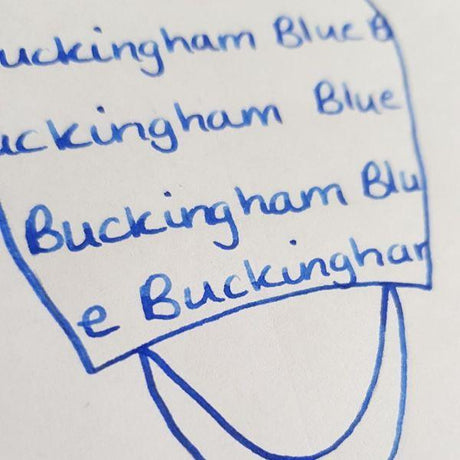 uckingham Blue B
uckingham Blue
Buckingham Blu
e Buckingham